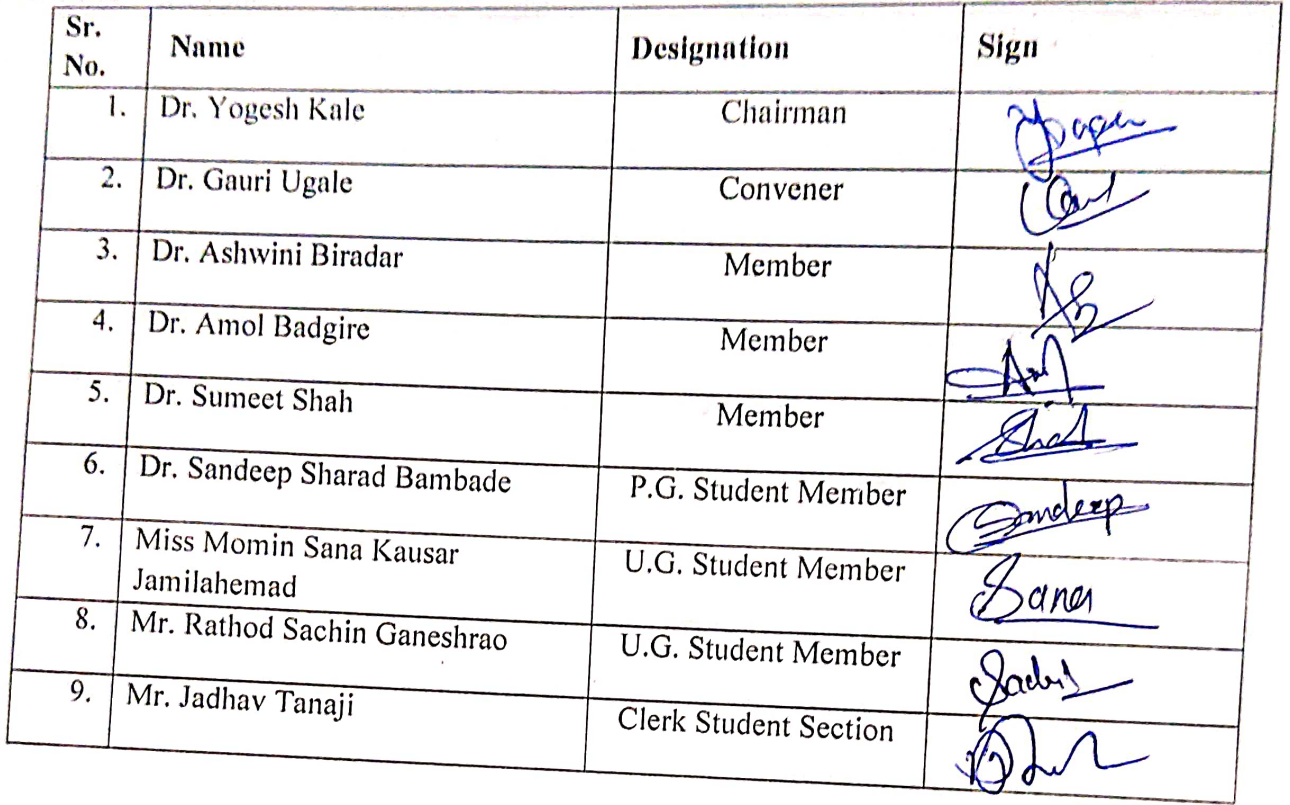 Sr. No. Name Designation Sign
1. Dr. Yogesh Kale Chairman
2. Dr. Gauri Ugale Convener
3. Dr. Ashwini Biradar Member
4. Dr. Amol Badgire Member
5. Dr. Sumeet Shah Member Shah
6. Dr. Sandeep Sharad Bambade P.G. Student Member Sandeep
7. Miss Momin Sana Kausar U.G. Student Member Sana
Jamilahemad
8. Mr. Rathod Sachin Ganeshrao U.G. Student Member
9. Mr. Jadhav Tanaji Clerk Student Section